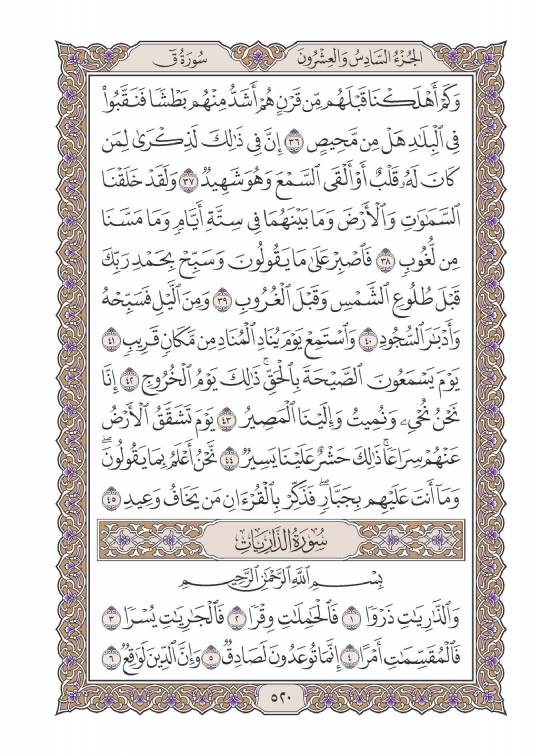 الجُزْءُ السَّادِسُ وَالعِشْرُونَ سُورَةُ قٓ
وَكَمۡ أَهۡلَكۡنَا قَبۡلَهُم مِّن قَرۡنٍ هُمۡ أَشَدُّ مِنۡهُم بَطۡشٗا فَنَقَّبُواْ
فِي ٱلۡبِلَٰدِ هَلۡ مِن مَّحِيصٍ ٣٦ إِنَّ فِي ذَٰلِكَ لَذِكۡرَىٰ لِمَن
كَانَ لَهُۥ قَلۡبٌ أَوۡ أَلۡقَى ٱلسَّمۡعَ وَهُوَ شَهِيدٞ ٣٧ وَلَقَدۡ خَلَقۡنَا
ٱلسَّمَٰوَٰتِ وَٱلۡأَرۡضَ وَمَا بَيۡنَهُمَا فِي سِتَّةِ أَيَّامٖ وَمَا مَسَّنَا
مِن لُّغُوبٖ ٣٨ فَٱصۡبِرۡ عَلَىٰ مَا يَقُولُونَ وَسَبِّحۡ بِحَمۡدِ رَبِّكَ
قَبۡلَ طُلُوعِ ٱلشَّمۡسِ وَقَبۡلَ ٱلۡغُرُوبِ ٣٩ وَمِنَ ٱلَّيۡلِ فَسَبِّحۡهُ
وَأَدۡبَٰرَ ٱلسُّجُودِ ٤٠ وَٱسۡتَمِعۡ يَوۡمَ يُنَادِ ٱلۡمُنَادِ مِن مَّكَانٖ قَرِيبٖ ٤١
يَوۡمَ يَسۡمَعُونَ ٱلصَّيۡحَةَ بِٱلۡحَقِّۚ ذَٰلِكَ يَوۡمُ ٱلۡخُرُوجِ ٤٢ إِنَّا
نَحۡنُ نُحۡيِۦ وَنُمِيتُ وَإِلَيۡنَا ٱلۡمَصِيرُ ٤٣ يَوۡمَ تَشَقَّقُ ٱلۡأَرۡضُ
عَنۡهُمۡ سِرَاعٗاۚ ذَٰلِكَ حَشۡرٌ عَلَيۡنَا يَسِيرٞ ٤٤ نَّحۡنُ أَعۡلَمُ بِمَا يَقُولُونَۖ
وَمَآ أَنتَ عَلَيۡهِم بِجَبَّارٖۖ فَذَكِّرۡ بِٱلۡقُرۡءَانِ مَن يَخَافُ وَعِيدِ ٤٥
سُورَةُ الذَّارِيَاتِ
بِسۡمِ ٱللَّهِ ٱلرَّحۡمَٰنِ ٱلرَّحِيمِ
وَٱلذَّٰرِيَٰتِ ذَرۡوٗا ١ فَٱلۡحَٰمِلَٰتِ وِقۡرٗا ٢ فَٱلۡجَٰرِيَٰتِ يُسۡرٗا ٣
فَٱلۡمُقَسِّمَٰتِ أَمۡرًا ٤ إِنَّمَا تُوعَدُونَ لَصَادِقٞ ٥ وَإِنَّ ٱلدِّينَ لَوَٰقِعٞ ٦
٥٢٠